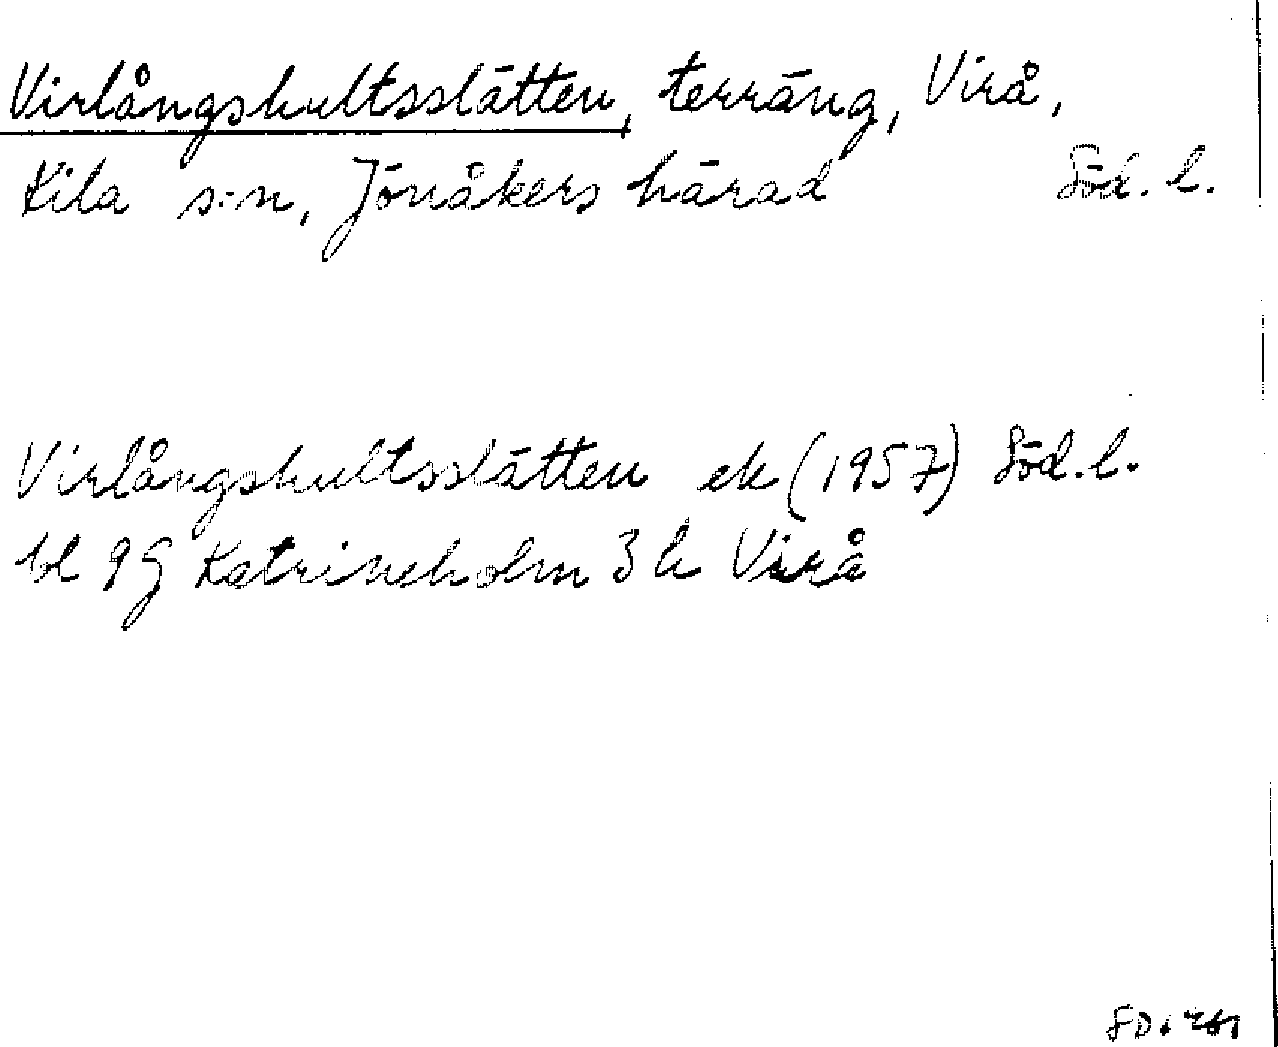 Virlångshultsslätten, terräng, Virå,
Kila s:n, Jönåkers härad Söd. l.
Virlångshultsslätten ek (1957) Söd. l.
bl 9G Katrineholm 3 h Virå